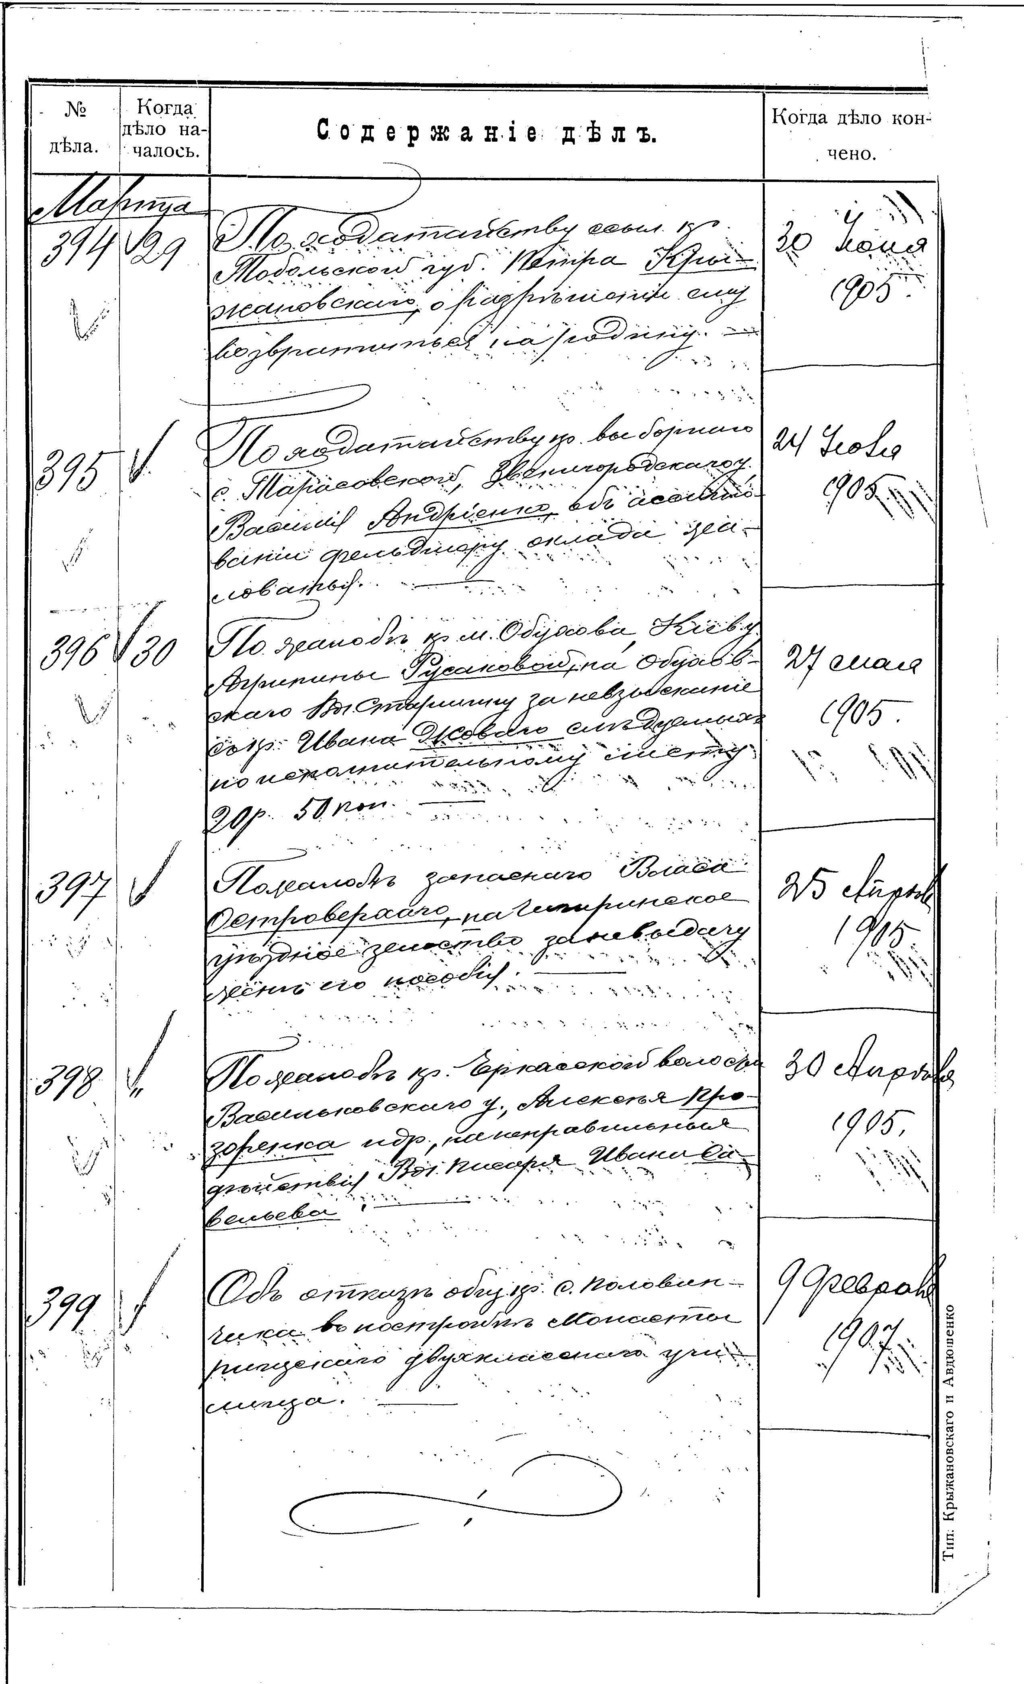 № дѣла.
Когда дѣло началось.
Содержаніе дѣлъ.
Когда дѣло кончено.
Марта
394 29
По ходатайству ссыл. кр.
Тобольской губ. Петра Кры-
жановскаго, о разрѣшеніи ему
возвратиться на родину. —
30 Іюня
1905.
395
По ходатайству кр. выборнаго
с. Тарасовской, Звенигородскаго у.
Василія Андріенко, объ ассигно-
ваніи фельдшеру оклада жа-
лованья.
24 Іюля
1905
396 30
По жалобѣ кр. м. Обухова, Кіев. у.
Агрипины Русаковой, на Обухов-
скаго Вол. Старшину за невзысканіе
съ кр. Ивана слѣдуемыхъ
по исполнительному листу
20 р. 50 коп.
27 мая
1905.
397
По жалобѣ запаснаго Власа
Островерхаго, на Чигиринское
уѣздное земство за невыдачу
женѣ его пособія.
25 Апрѣля
1905
398
По жалобѣ кр. Черкасской волости
Васильковскаго у., Алексѣя Про-
зоренка и др., на неправильныя
дѣйствія Вол. Писаря Ивана Са-
вельева.
30 Апрѣля
1905.
399
Объ отказѣ общ. кр. с. Половин-
чика въ постройкѣ Монасты
рищскаго двухкласснаго учи-
лища.
9 Февраля
1907
Тип. Крыжановскаго и Авдюшенко